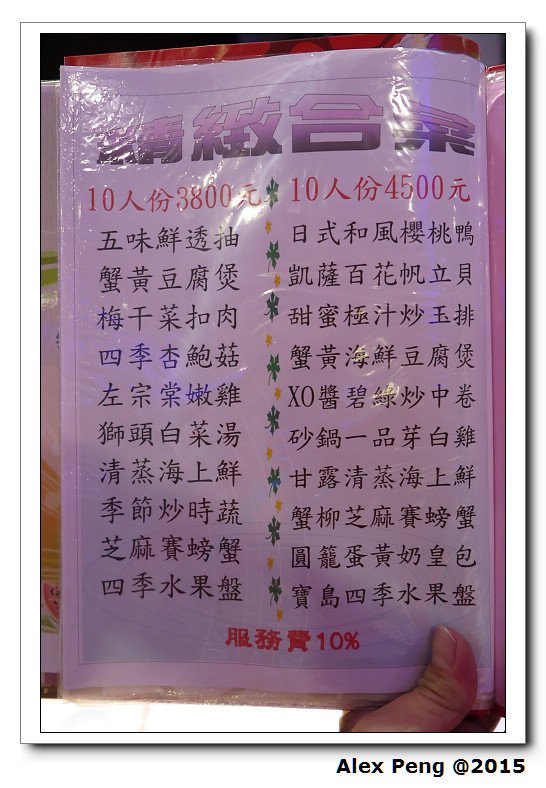 精緻合菜
10人份3800元
五味鮮透抽
蟹黃豆腐煲
梅干菜扣肉
四季杏鮑菇
左宗棠嫩雞
獅頭白菜湯
清蒸海上鮮
季節炒時蔬
芝麻賽螃蟹
四季水果盤
10人份4500元
日式和風櫻桃鴨
凱薩百花帆立貝
甜蜜極汁炒玉排
蟹黃海鮮豆腐煲
XO醬碧綠炒中卷
砂鍋一品芽白雞
甘露清蒸海上鮮
蟹柳芝麻賽螃蟹
圓籠蛋黃奶皇包
寶島四季水果盤
服務費10%
Alex Peng @2015